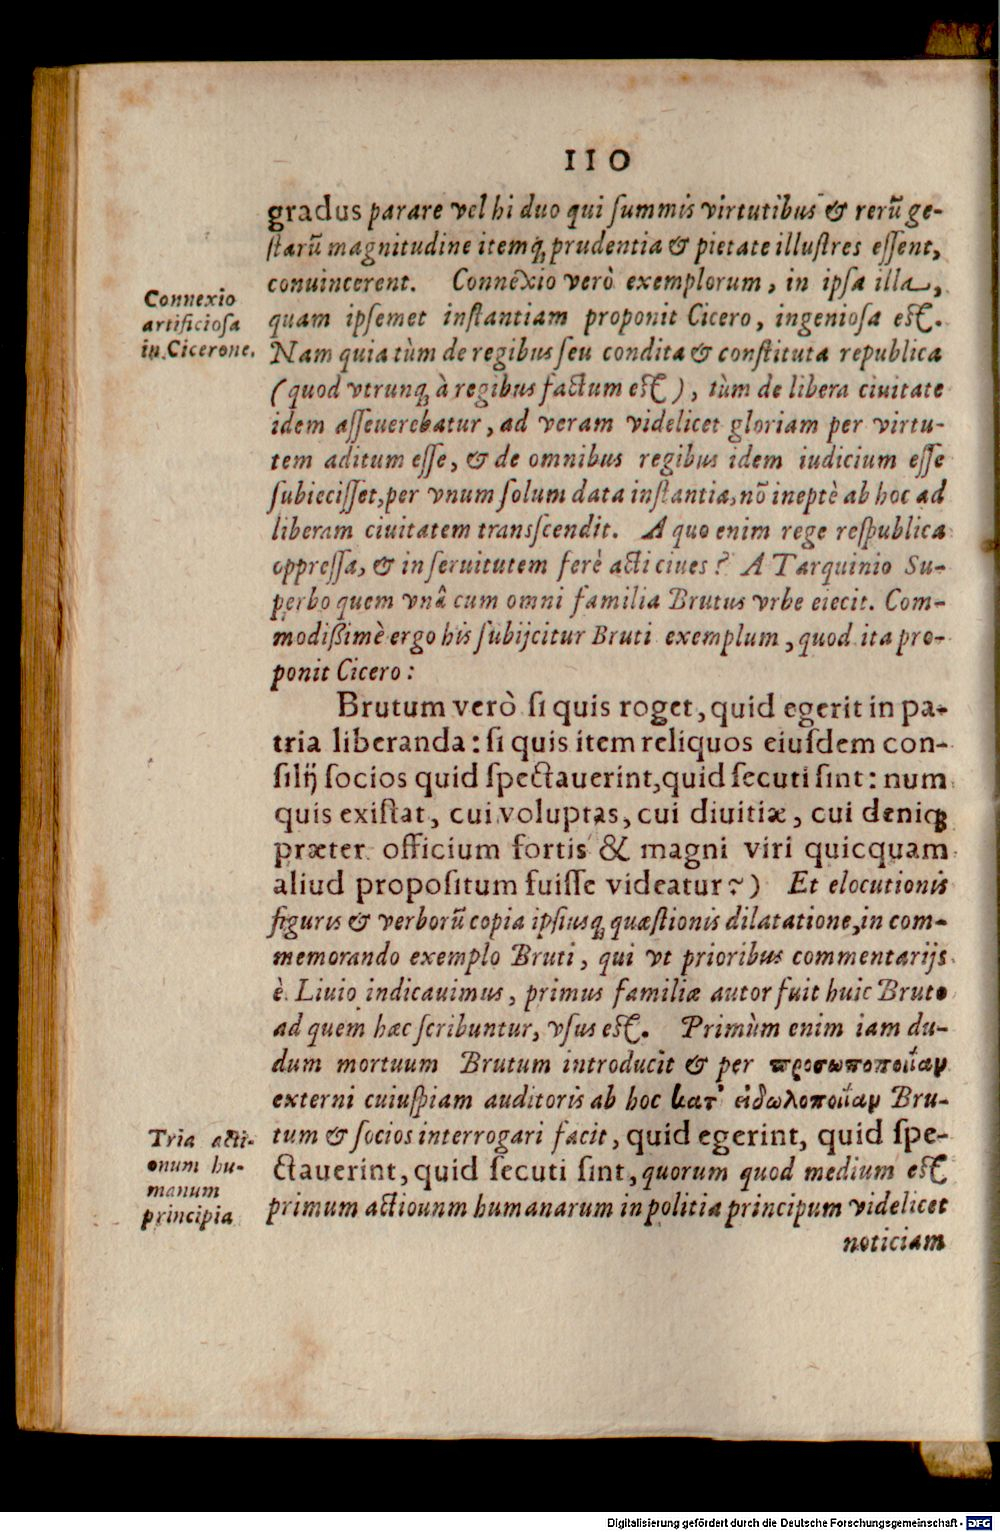 110
gradus parare vel hi duo qui ſummis virtutibus & rerū ge-
ſtarū magnitudine itemq; prudentia & pietate illuſtres eſſent,
conuincerent. Connexio verò exemplorum, in ipſa illa,
Connexio
artificioſa
in Cicerone.
quam ipſemet inſtantiam proponit Cicero, ingenioſa eſt.
Nam quia tùm de regibus ſeu condita & conſtituta republica
(quod vtrunq; à regibus factum eſt), tùm de libera ciuitate
idem aſſeuerebatur, ad veram videlicet gloriam per virtu-
tem aditum eſſe, & de omnibus regibus idem iudicium eſſe
ſubieciſſet, per vnum ſolum data inſtantia, nō ineptè ab hoc ad
liberam ciuitatem tranſcendit. A quo enim rege reſpublica
oppreſſa, & in ſeruitutem ferè acti ciues? A Tarquinio Su-
perbo quem vnâ cum omni familia Brutus vrbe eiecit. Com-
modißimè ergo his ſubijcitur Bruti exemplum, quod ita pro-
ponit Cicero:
Brutum verò ſi quis roget, quid egerit in pa-
tria liberanda: ſi quis item reliquos eiuſdem con-
ſilij ſocios quid ſpectauerint, quid ſecuti ſint: num
quis exiſtat, cui voluptas, cui diuitiæ, cui deniq;
præter officium fortis & magni viri quicquam
aliud propoſitum fuiſſe videatur?) Et elocutionis
figuris & verborū copia ipſiusq; quæſtionis dilatatione, in com-
memorando exemplo Bruti, qui vt prioribus commentarijs
è Liuio indicauimus, primus familiæ autor fuit huic Bruto
ad quem hæc ſcribuntur, vſus eſt. Primùm enim iam du-
dum mortuum Brutum introducit & per προσωποποιΐαν
externi cuiuſpiam auditoris ab hoc κατ' εἰδωλοποιΐαν Bru-
tum & ſocios interrogari facit, quid egerint, quid ſpe-
ctauerint, quid ſecuti ſint, quorum quod medium eſt
primum actiounm humanarum in politia principum videlicet
Tria acti-
onum hu-
manum
principia
noticiam
Digitalisierung gefördert durch die Deutsche Forschungsgemeinschaft - DFG